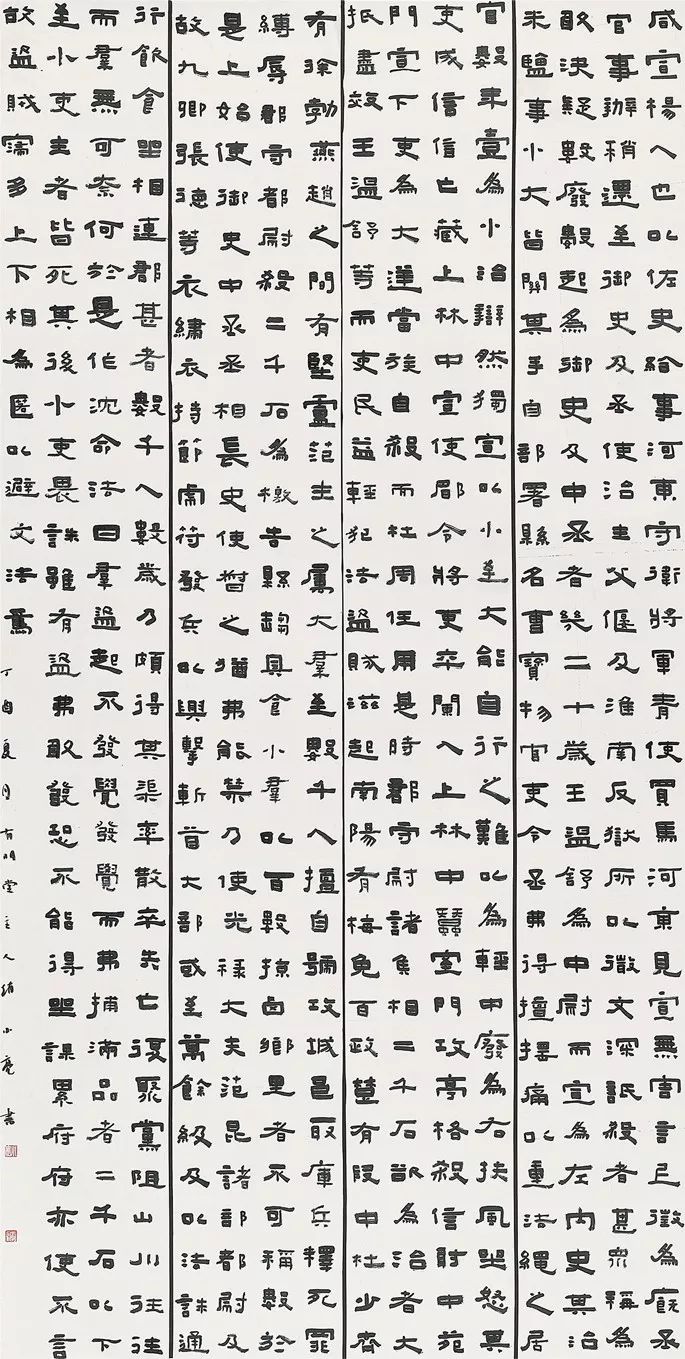 咸宣楊人也以佐史給事河東守衛將軍青使買馬河東見宣無害言上徵為廄丞
官事辦稍遷至御史及丞使治主父偃及淮南反獄所以微文深詆殺者甚眾稱為
敢決疑數廢數起為御史及中丞者幾二十歲王溫舒為中尉而宣為左內史其治
米鹽事小大皆關其手自部署縣名曹寶物官吏令丞弗得擅搖痛以重法繩之居
官數年壹為小治辯然獨宣以小至大能自行之難以為經中廢為右扶風坐怒其
吏成信信亡藏上林中宣使郿令將吏卒闌入上林中蠶室門攻亭格殺信射中苑
門宣下吏為大逆當族自殺而杜周任用是時郡守尉諸侯相二千石欲為治者大
抵盡效王溫舒等而吏民益輕犯法盜賊滋起南陽有梅免百政楚有段中杜少齊
有徐勃燕趙之間有堅盧范主之屬大羣至數千人擅自號攻城邑取庫兵釋死罪
縛辱郡守都尉殺二千石為檄告縣趨具食小羣以百數掠鹵鄉里者不可稱數於
是上始使御史中丞丞相長史使督之猶弗能禁乃使光祿大夫范昆諸部都尉及
故九卿張德等衣繡衣持節虎符發兵以興擊斬首大部或至萬餘級及以法誅通
行飲食坐相連郡甚者數千人數歲乃頗得其渠率散卒失亡復聚黨阻山川往往
而羣無可奈何於是作沈命法曰羣盜起不發覺發覺而弗捕滿品者二千石以下
至小吏主者皆死其後小吏畏誅雖有盜弗敢發恐不能得坐課累府府亦使不言
故盜賊寖多上下相為匿以避文法焉
丁酉夏月有明堂主人小亮書